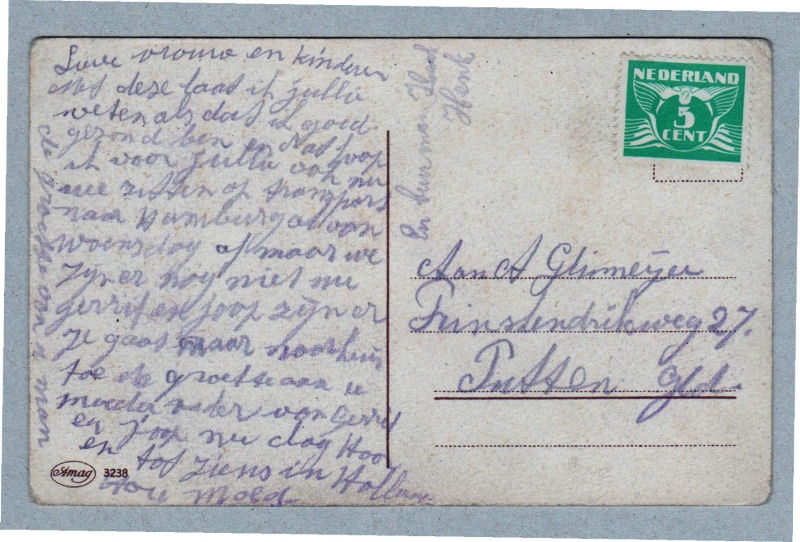 Lieve vrouw en kinderen
Met deze laat ik jullie
weten als dat ik goed
gezond ben en dat hoop
ik voor jullie ook nu
we zitten op transport
naar Hamburg al van
woensdag of maar we
zijn er nog niet nu
gerrit en Joop zijn er
je gaat maar naar huis
toe de groete aan u
moeder vader van gerrit
en Joop nu dag hoor
en tot ziens in Holland
Hou moed
de groetjes van u man
Henk
NEDERLAND
5
CENT
Aan A Glismeijer
Prins Hendrikweg 27.
Putten Gld.
Amag 3238